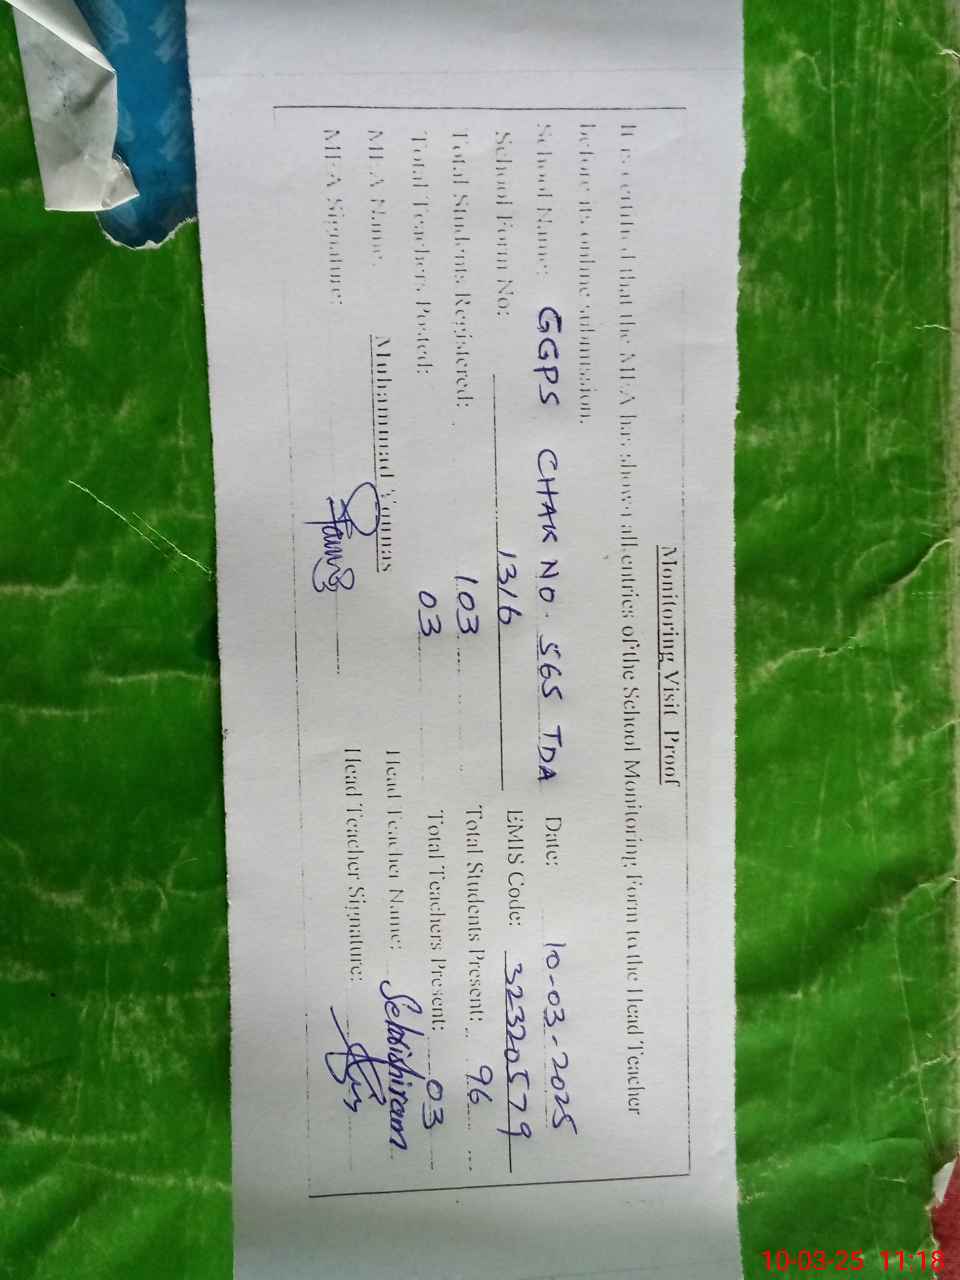 Monitoring Visit Proof
It is certified that the MEA has shown all entries of the School Monitoring Form to the Head Teacher
before its online submission.
School Name: GGPS CHAK NO. 565 TDA Date: 10-03-2025
School Form No: 1316 EMIS Code: 32320579
Total Students Registered: 103 Total Students Present: 96
Total Teachers Posted: 03 Total Teachers Present: 03
MEA Name: Muhammad Younas Head Teacher Name:
MEA Signature: Head Teacher Signature:
10-03-25 11:18